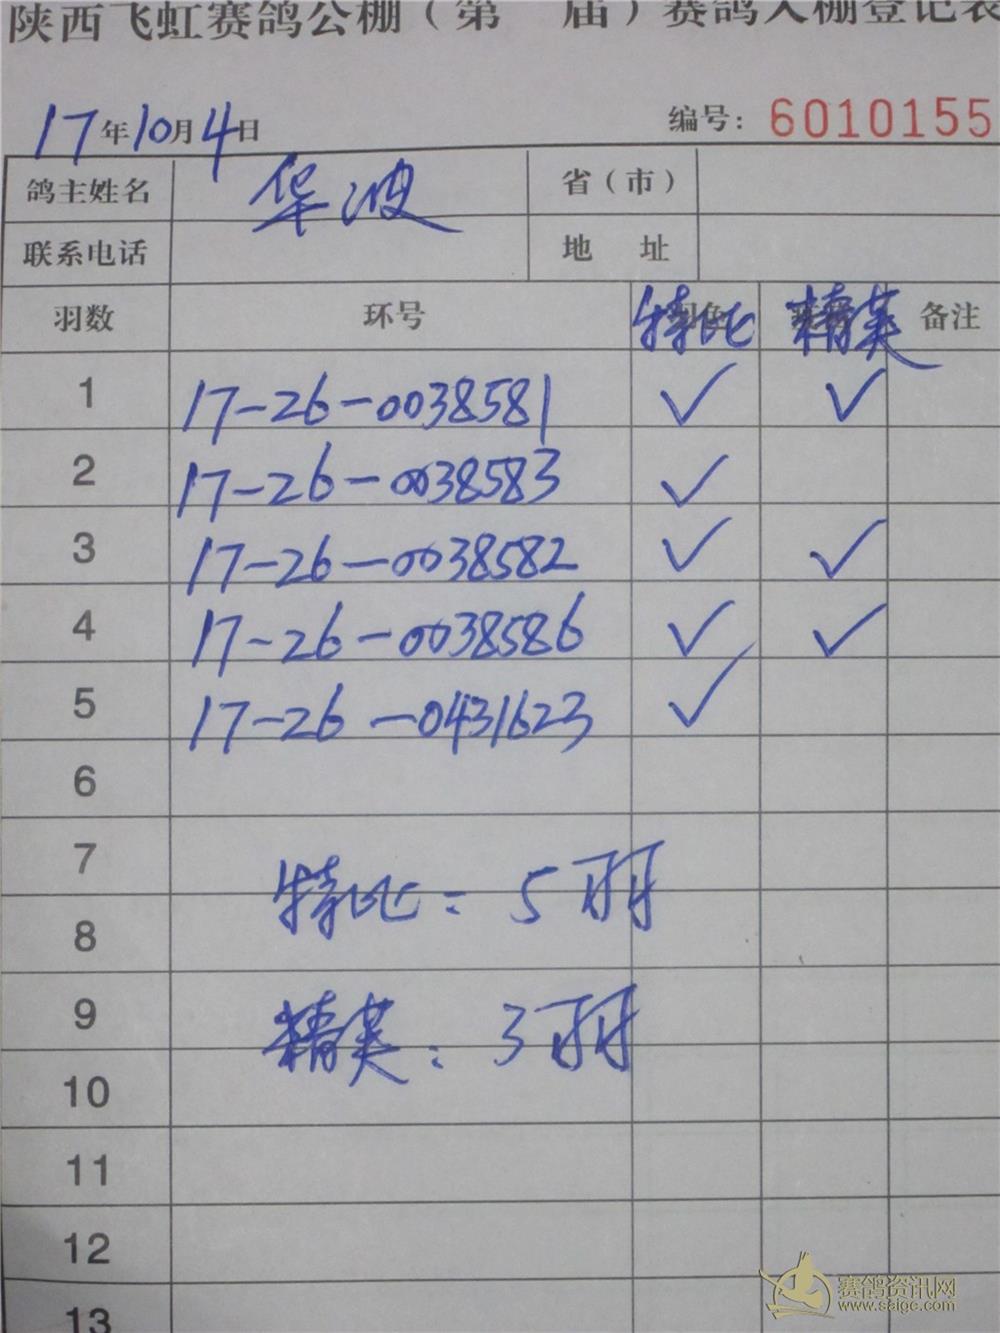 陕西飞虹赛鸽公棚（第 届）赛鸽入棚登记表
17年10月4日 编号：6010155
鸽主姓名 华波 省（市）
联系电话 地 址
羽数 环号 特比 精英 备注
1 17-26-0038581 ✓ ✓
2 17-26-0038583 ✓
3 17-26-0038582 ✓ ✓
4 17-26-0038586 ✓ ✓
5 17-26-0431623 ✓
6
7
特比：5羽
8
9
精英：3羽
10
11
12
13
赛鸽资讯网
www.saigc.com